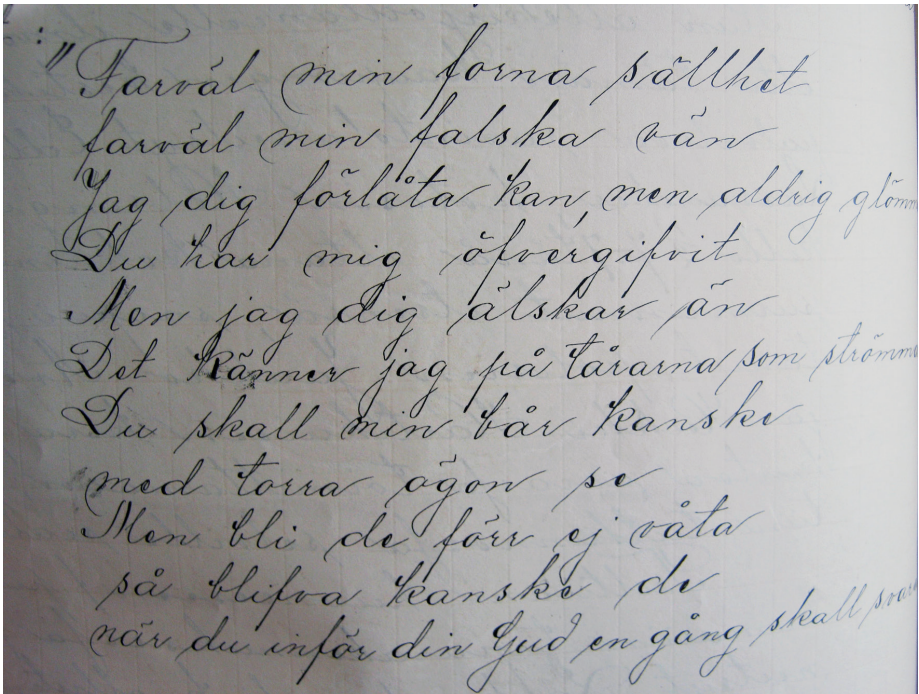 "Farväl min forna sällhet
farväl min falska vän
Jag dig förlåta kan, men aldrig glömm
Du har mig öfvergifvit
Men jag dig älskar än
Det känner jag på tårarna som strömm
Du skall min bår kanske
med torra ögon se
Men bli de förr ej våta
så blifva kanske de
när du inför din Gud en gång skall svara